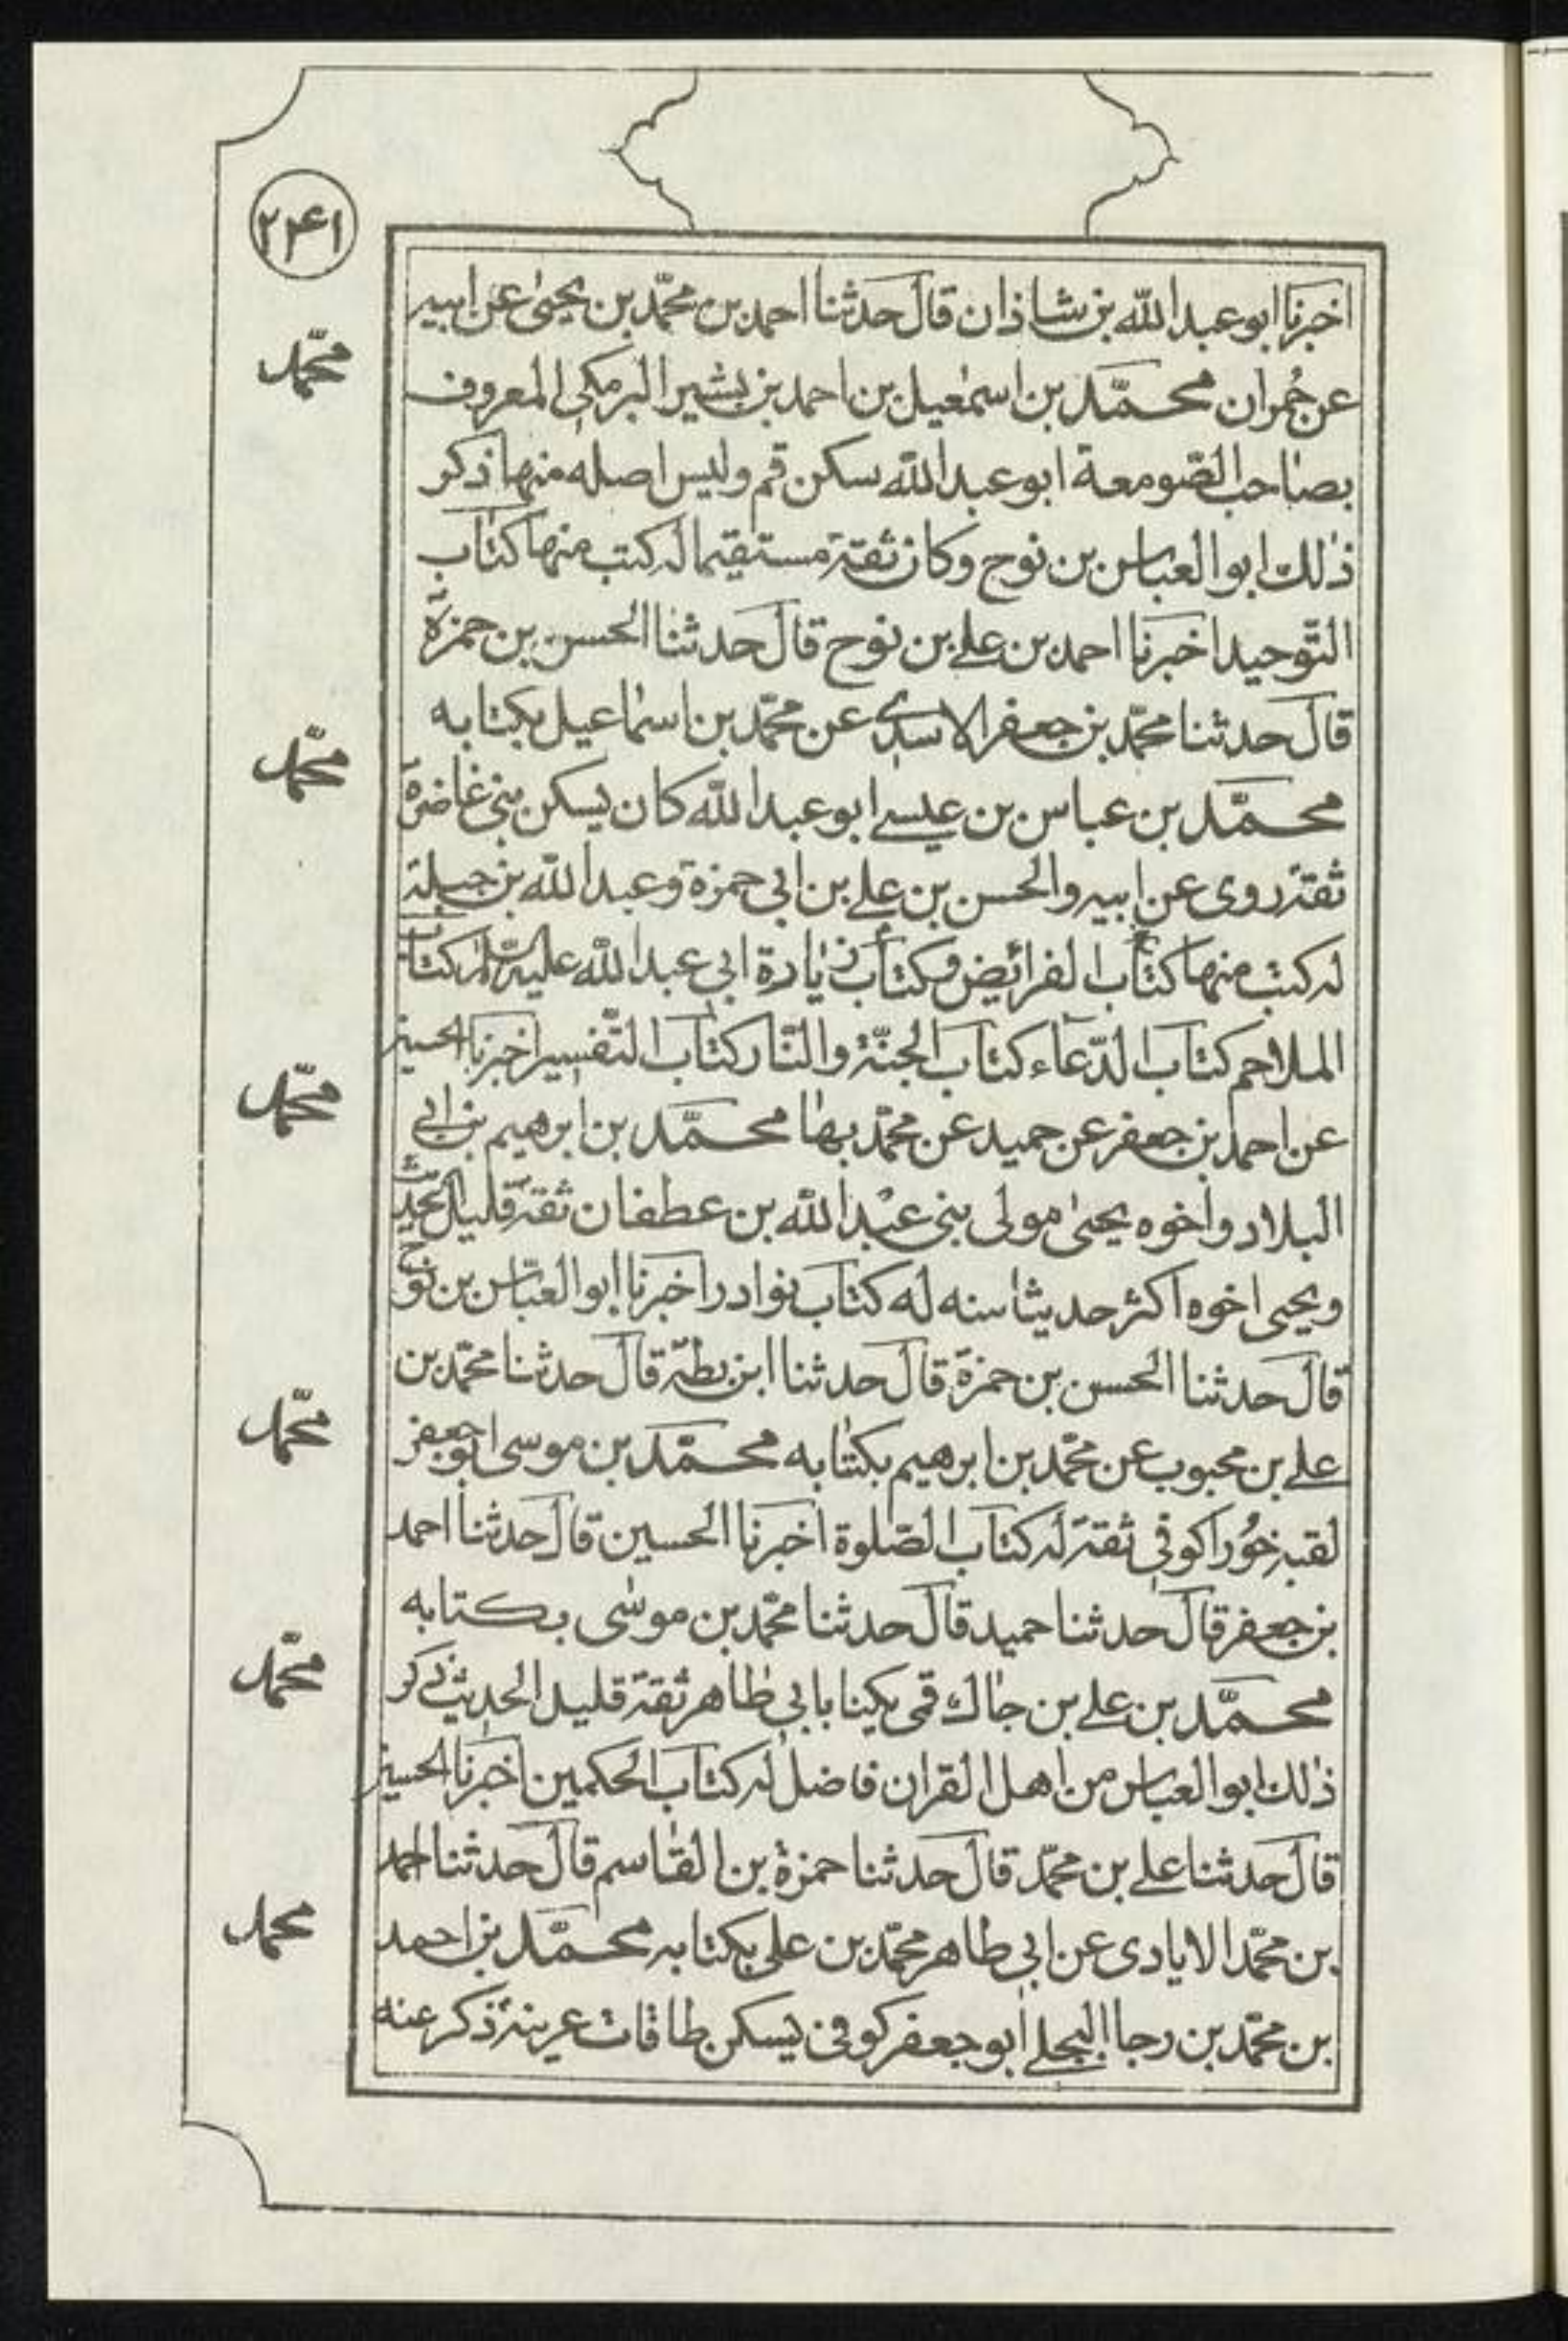 ٢٤١
اخبرنا ابو عبد الله بن شاذان قال حدثنا احمد بن محمّد بن يحيىٰ عن ابيه
عن حُمران محمّد بن اسمٰعيل بن احمد بن بشير البرمكى المعروف
بصاحب الصّومعة ابو عبد الله سكن قم وليس اصله منها ذكر
ذٰلك ابو العباس بن نوح وكان ثقة مستقيما له كتب منها كتاب
التّوحيد اخبرنا احمد بن على بن نوح قال حدثنا الحسن بن حمزة
قال حدثنا محمّد بن جعفر الاسدى عن محمّد بن اسماعيل بكتابه
محمّد بن عباس بن عيسى ابو عبد الله كان يسكن بنى غاضرة
ثقة روى عن ابيه والحسن بن على بن ابى حمزة وعبد الله بن جبلة
له كتب منها كتاب الفرائض وكتاب زيارة ابى عبد الله عليه السّلم كتاب
الملاحم كتاب الدّعاء كتاب الجنّة والنّار كتاب التّفسير اخبرنا الحسين
عن احمد بن جعفر عن حميد عن محمّد بها محمّد بن ابرهيم بن ابى
البلاد واخوه يحيىٰ مولى بنى عبد الله بن عطفان ثقة قليل الحديث
ويحيى اخوه اكثر حديثا سنه له كتاب نوادر اخبرنا ابو العبّاس بن نوح
قال حدثنا الحسن بن حمزة قال حدثنا ابن بطة قال حدثنا محمّد بن
على بن محبوب عن محمّد بن ابرهيم بكتابه محمّد بن موسى ابو جعفر
لقبه خورا كوفى ثقة له كتاب الصّلوة اخبرنا الحسين قال حدثنا احمد
بن جعفر قال حدثنا حميد قال حدثنا محمّد بن موسٰى بكتابه
محمّد بن على بن جاك قمى يكنا بابى طاهر ثقة قليل الحديث ذكر
ذٰلك ابو العباس من اهل القران فاضل له كتاب الحكمين اخبرنا الحسين
قال حدثنا على بن محمّد قال حدثنا حمزة بن القاسم قال حدثنا احمد
بن محمّد الايادى عن ابى طاهر محمّد بن على بكتابه محمّد بن احمد
بن محمّد بن رجا البجلى ابو جعفر كوفى يسكن طاقات عرينة ذكر عنه
محمّد
محمّد
محمّد
محمّد
محمّد
محمد